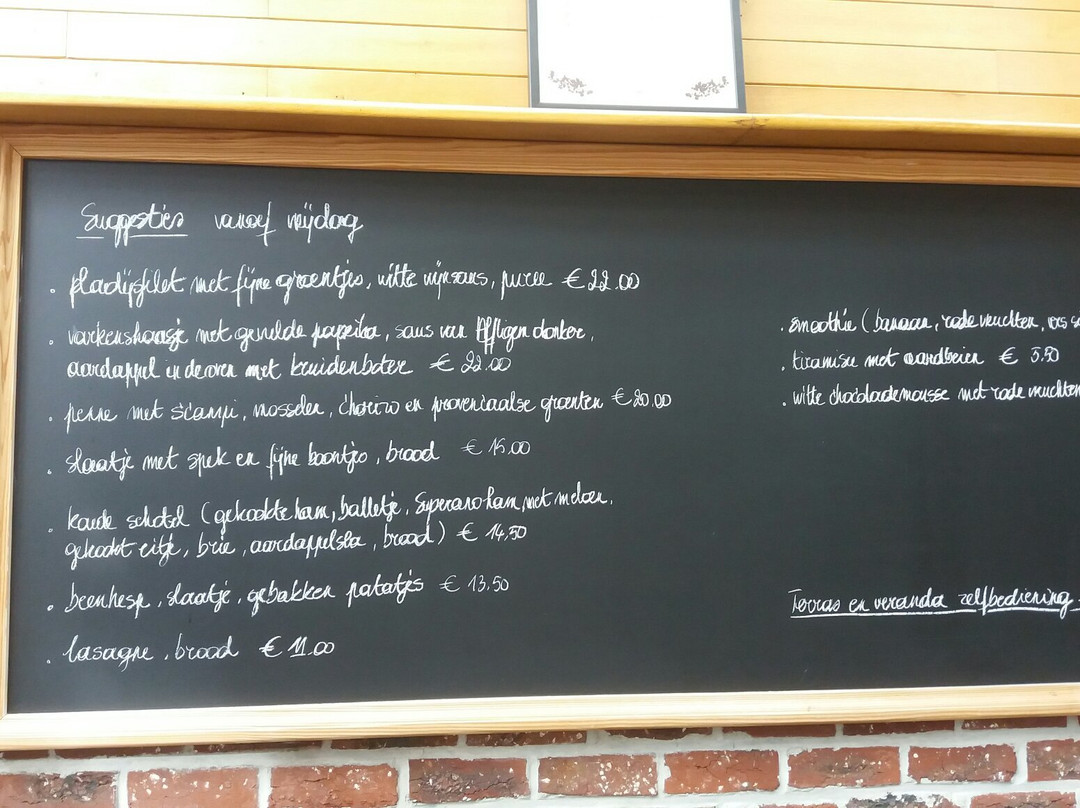 Suggesties vanaf vrijdag
. pladijsfilet met fijne groentjes, witte wijnsaus, puree € 22.00
. varkenshaasje met gevulde paprika, saus van Affligem donker,
aardappel in de oven met kruidenboter € 22.00
. penne met scampi, mosselen, chorizo en provençaalse groenten € 20.00
. slaatje met spek en fijne boontjes, brood € 15.00
. koude schotel (gekookte ham, balletje, Superano ham met meloen,
gekookt eitje, brie, aardappelsla, brood) € 14,50
. beenhesp, slaatje, gebakken patatjes € 13.50
. lasagne, brood € 11.00
. smoothie (banaan, rode vruchten, vers
. tiramisu met aardbeien € 5.50
. witte chocolademousse met rode vruchten
Terras en veranda zelfbediening